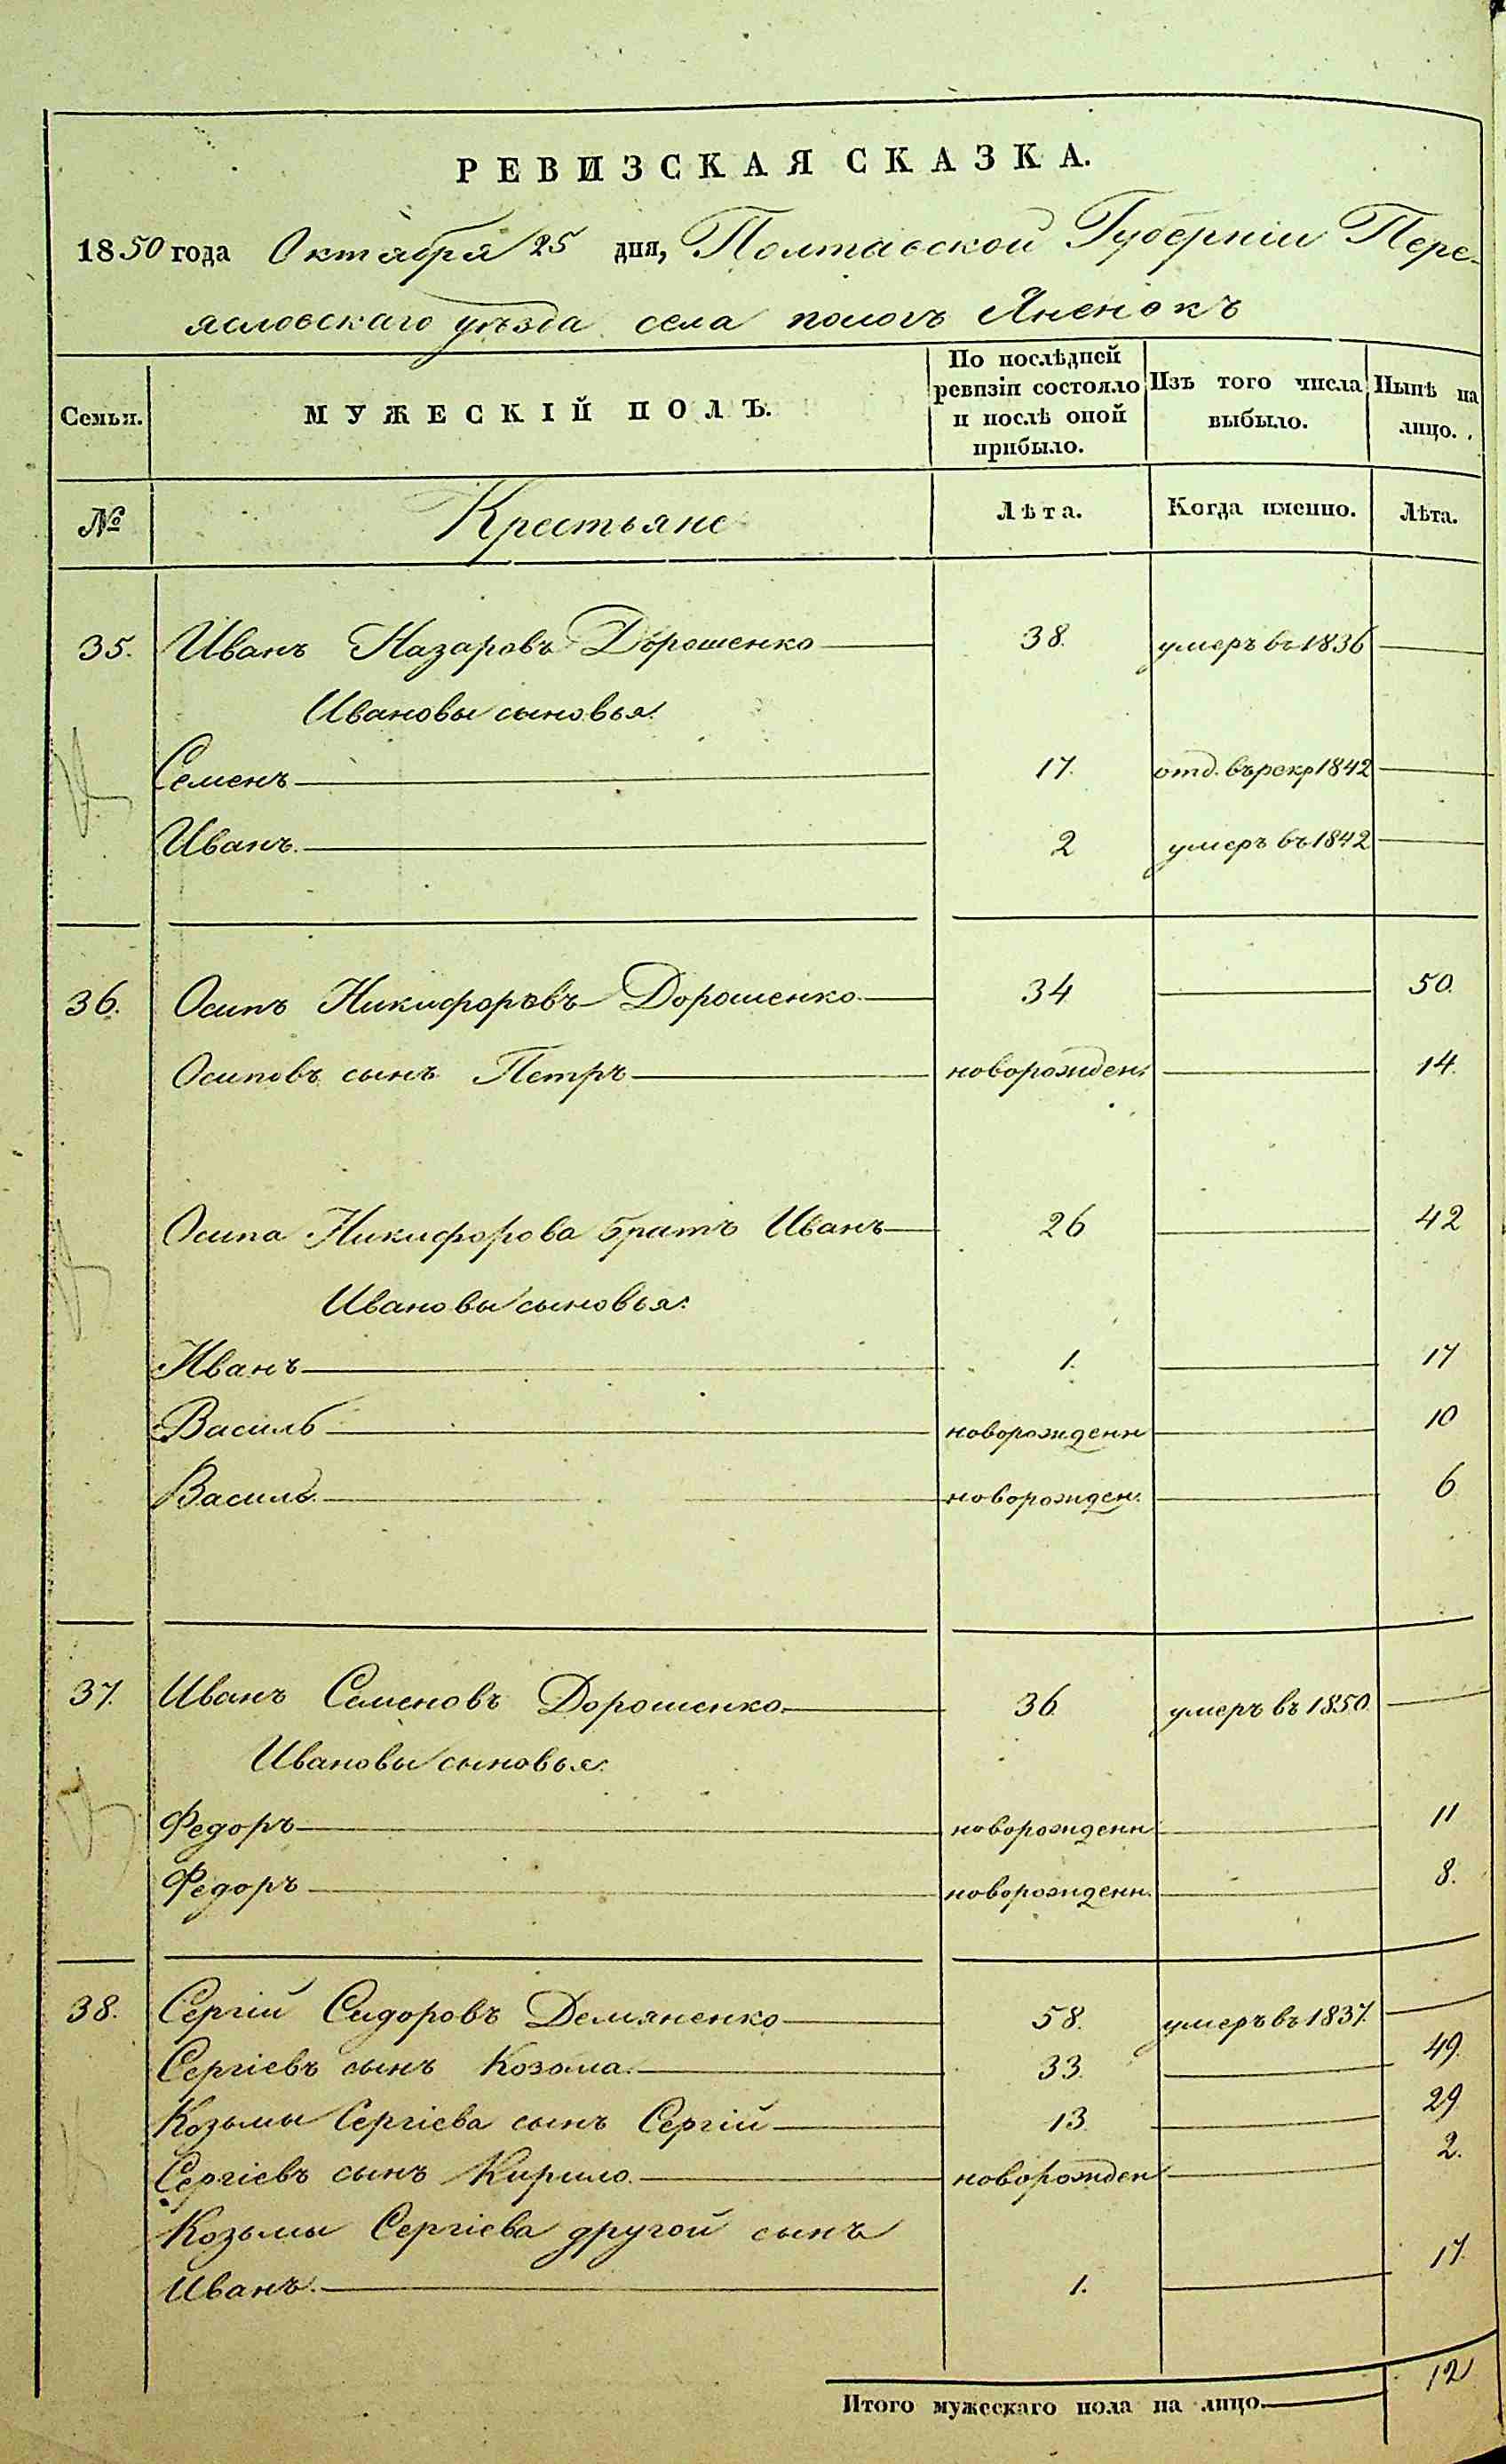 РЕВИЗСКАЯ СКАЗКА.
1850 года Октября 25 дня, Полтавской Губерніи Пере-
ясловскаго уѣзда села пологъ Яненокъ
Семьи. МУЖЕСКІЙ ПОЛЪ. По послѣдней ревизіи состояло и послѣ оной прибыло. Изъ того числа выбыло. Нынѣ на лицо.
№ Крестьяне Лѣта. Когда именно. Лѣта.
35. Иванъ Назаровъ Дорошенко 38. умеръ въ 1836
Ивановы сыновья:
Семенъ 17. отд. въ рекр 1842
Иванъ. 2 умеръ въ 1842
36. Осипъ Никифоровъ Дорошенко 34 50.
Осиповъ сынъ Петръ новорожден. 14.
Осипа Никифорова братъ Иванъ 26 42
Ивановы сыновья:
Иванъ 1. 17
Василь новорожденн 10
Василь новорожден. 6
37. Иванъ Семеновъ Дорошенко 36 умеръ въ 1850
Ивановы сыновья:
Федоръ новорожденн 11
Федоръ новорожденн. 8.
38. Сергій Сидоровъ Демяненко 58. умеръ въ 1837.
Сергіевъ сынъ Козьма. 33. 49.
Козьмы Сергіева сынъ Сергій 13 29
Сергіевъ сынъ Кирило. новорожден 2.
Козьмы Сергіева другой сынъ
Иванъ. 1. 17.
Итого мужескаго пола на лицо. 12